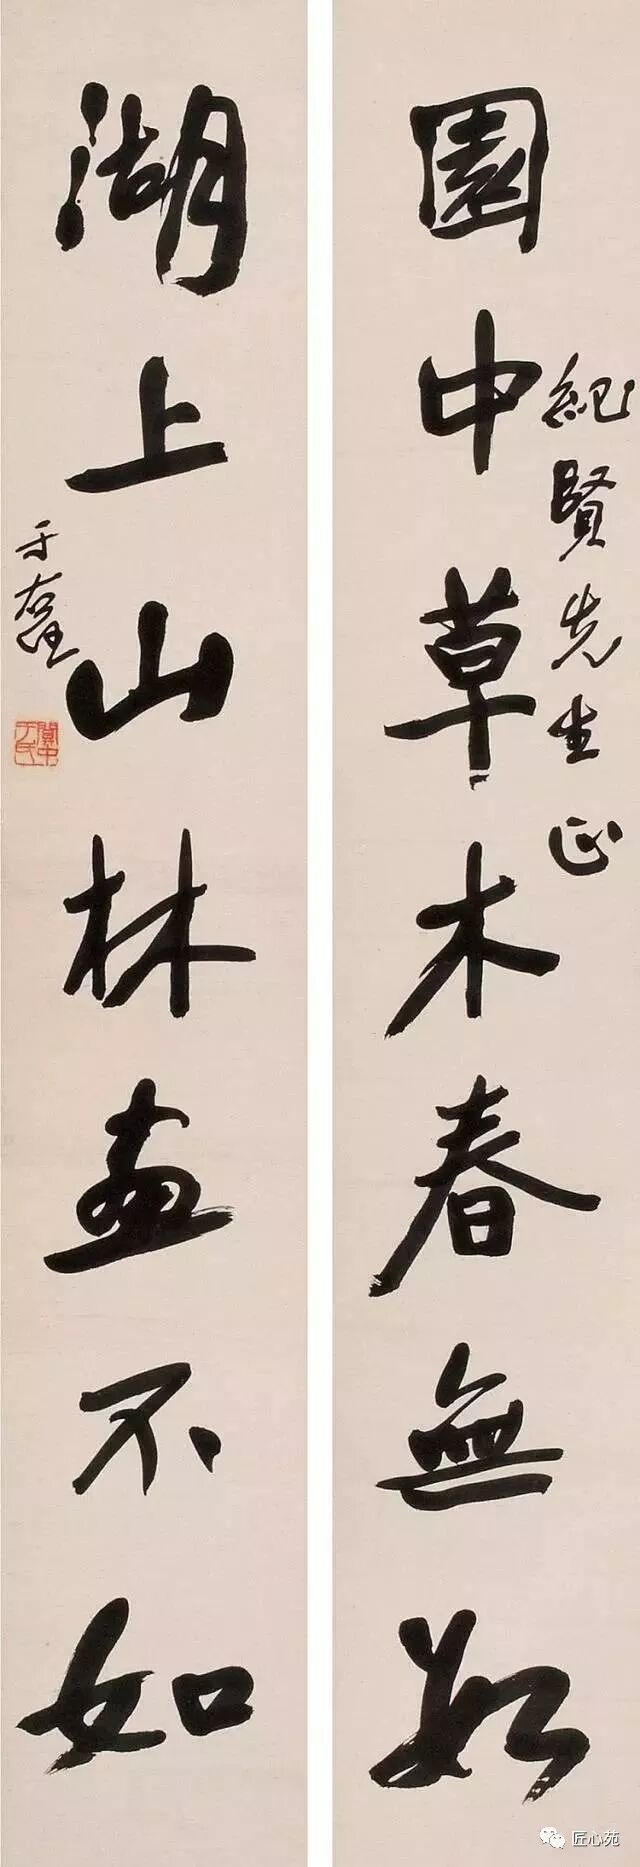 園中草木春無數
紀賢先生正
湖上山林畫不如
于右任
關中于氏
匠心苑